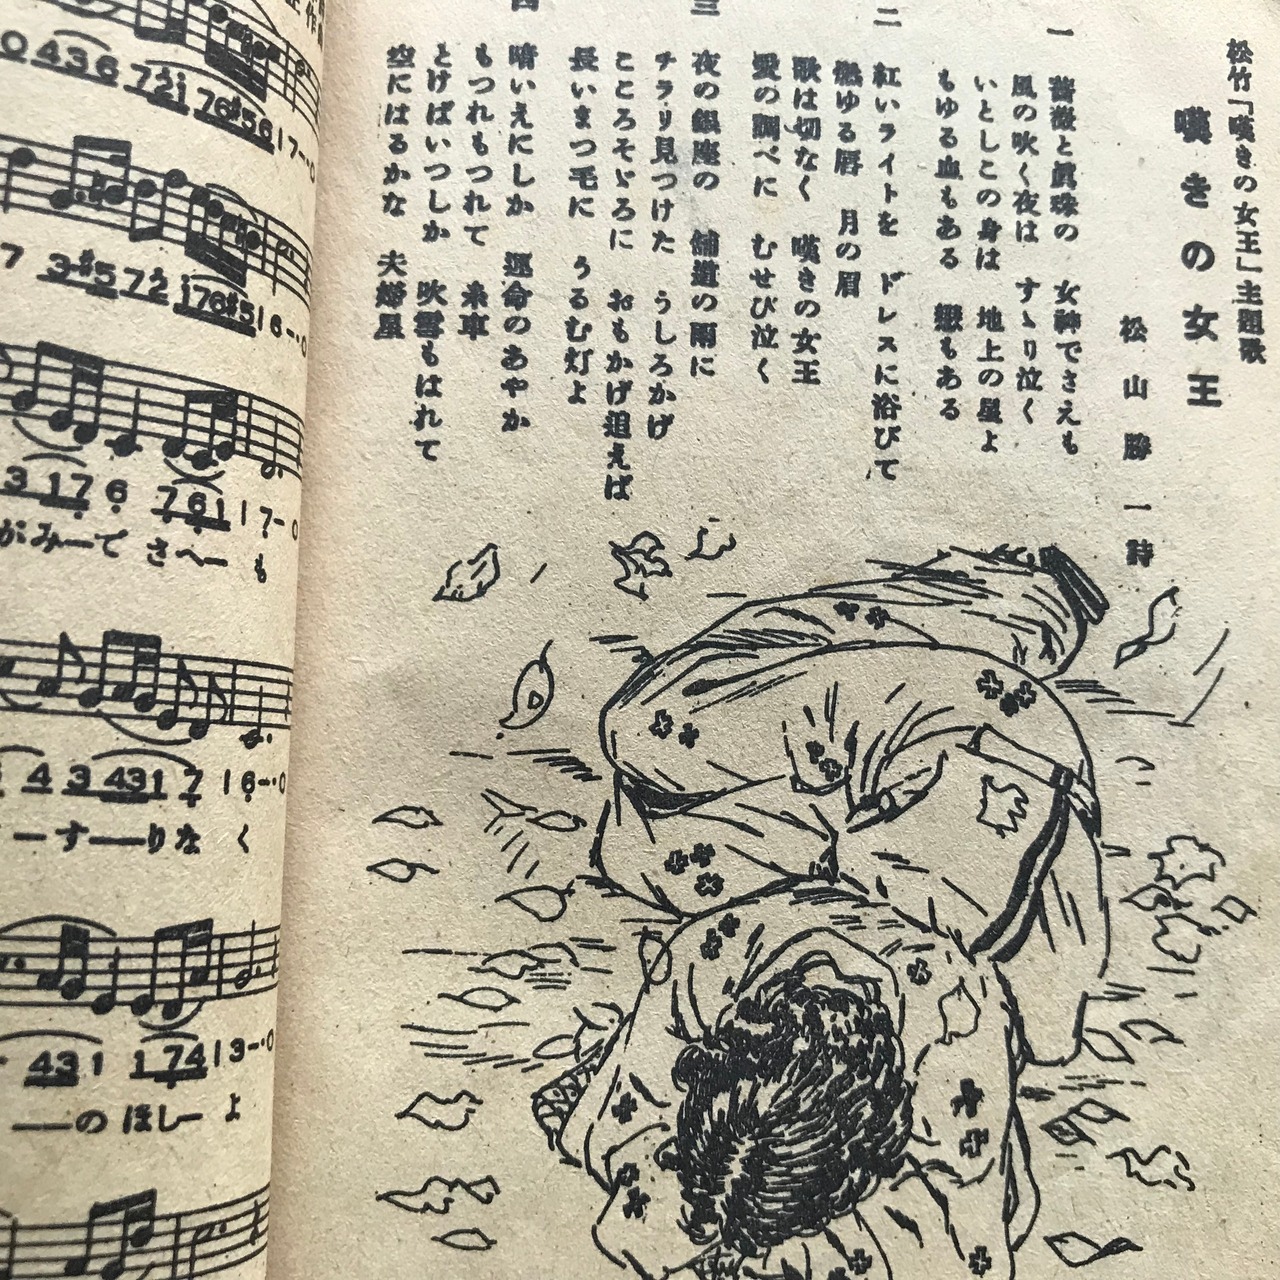 松竹「嘆きの女王」主題歌
嘆きの女王
松山勝一詩
一
薔薇と眞珠の　女神でさえも
風の吹く夜は　すゝり泣く
いとしこの身は　地上の星よ
もゆる血もある　戀もある
二
紅いライトを　ドレスに浴びて
燃ゆる唇　月の眉
歌は切なく　嘆きの女王
愛の調べに　むせび泣く
三
夜の銀座の　舗道の雨に
チラリ見つけた　うしろかげ
こころそゞろに　おもかげ追えば
長いまつ毛に　うるむ灯よ
四
暗いえにしか　運命のあやか
もつれもつれて　糸車
とけばいつしか　吹雪もはれて
空にはるかな　夫婦星
0436 7 2 i 76#56 | 7-・0
7 3・#5 72 i76#5 | 6-・0
3 17 6 7 61 | 7-0
がみーで さへー も
4 3 431 7 | 6-・0
ーすーりな く
43 1 1 74 | 3-・0
ーの ほしー よ